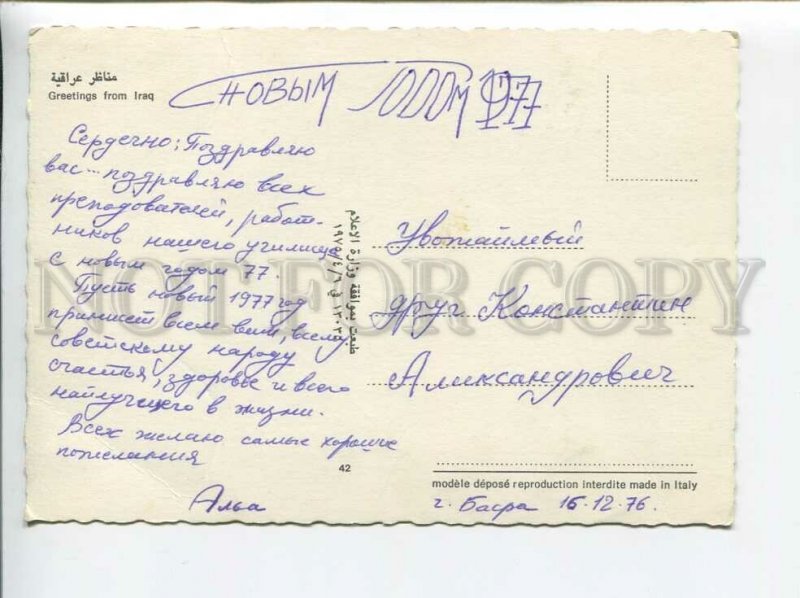 مناظر عراقية
Greetings from Iraq
С НОВЫМ ГОДОМ 1977
Сердечно: Поздравляю
вас... поздравляю всех
преподователей, работ-
ников нашего училища
с новым годом 77.
Пусть новый 1977 год
принисёт всем вам, всему
советскому народу
счастья, здоровье и всего
найлучщего в жизни.
Всех желаю самые хорошие
пожелания
Альа
طبعت بموافقة وزارة الإعلام
Увожаймый
друг Константин
Алиқсандрович
42
modèle déposé reproduction interdite made in Italy
г. Басра 16.12.76.
NOT FOR COPY